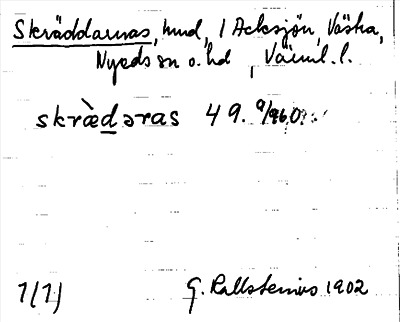 Skräddarnas, hmd, 1 Acksjön, Västra,
Nyeds sn o. hd, Värml. l.
skræ̀dəras 49.
1(1) G. Kallstenius 1902